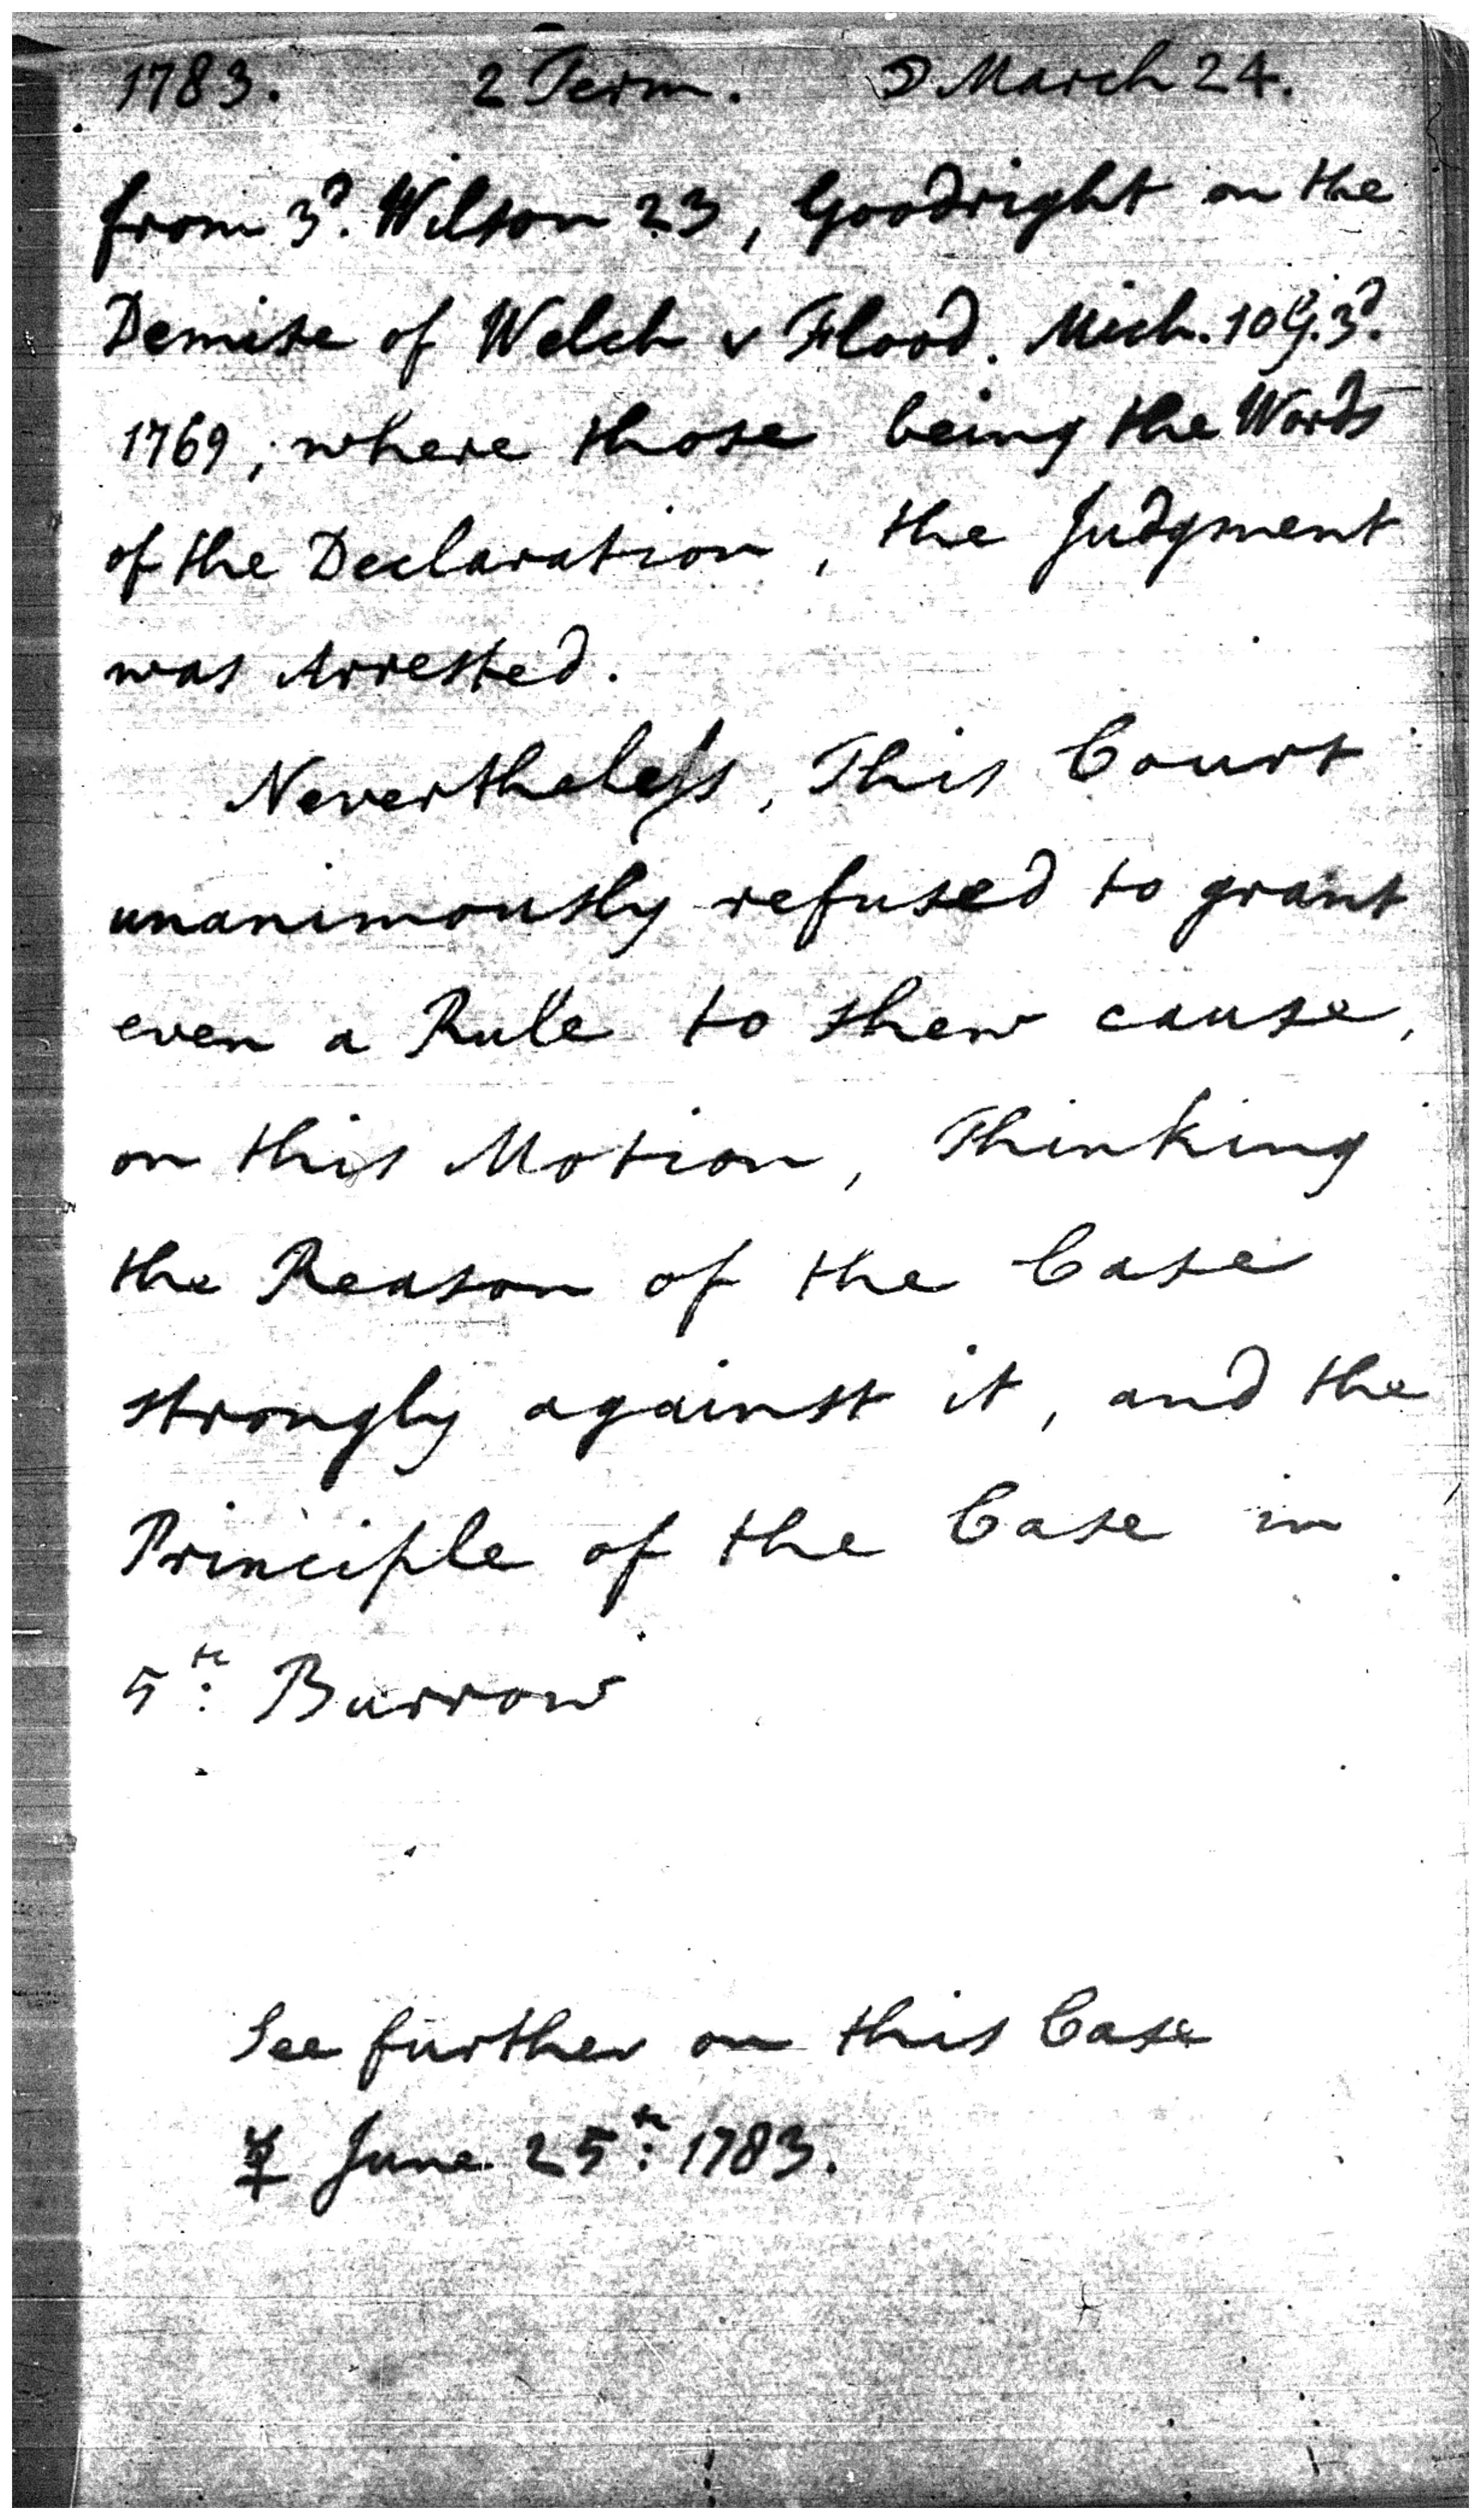 1783. 2 Term. ☽ March 24.
from 3d. Wilson 23, Goodright on the
Demise of Welch v Flood. Mich. 10 G. 3d.
1769; where those being the Words
of the Declaration, the Judgment
was Arrested.
Nevertheleſs, This Court
unanimously refused to grant
even a Rule to shew cause,
on this Motion, Thinking
the Reason of the Case
strongly against it, and the
Principle of the Case in
5th: Burrow
See further on this Case
☿ June 25th: 1783.